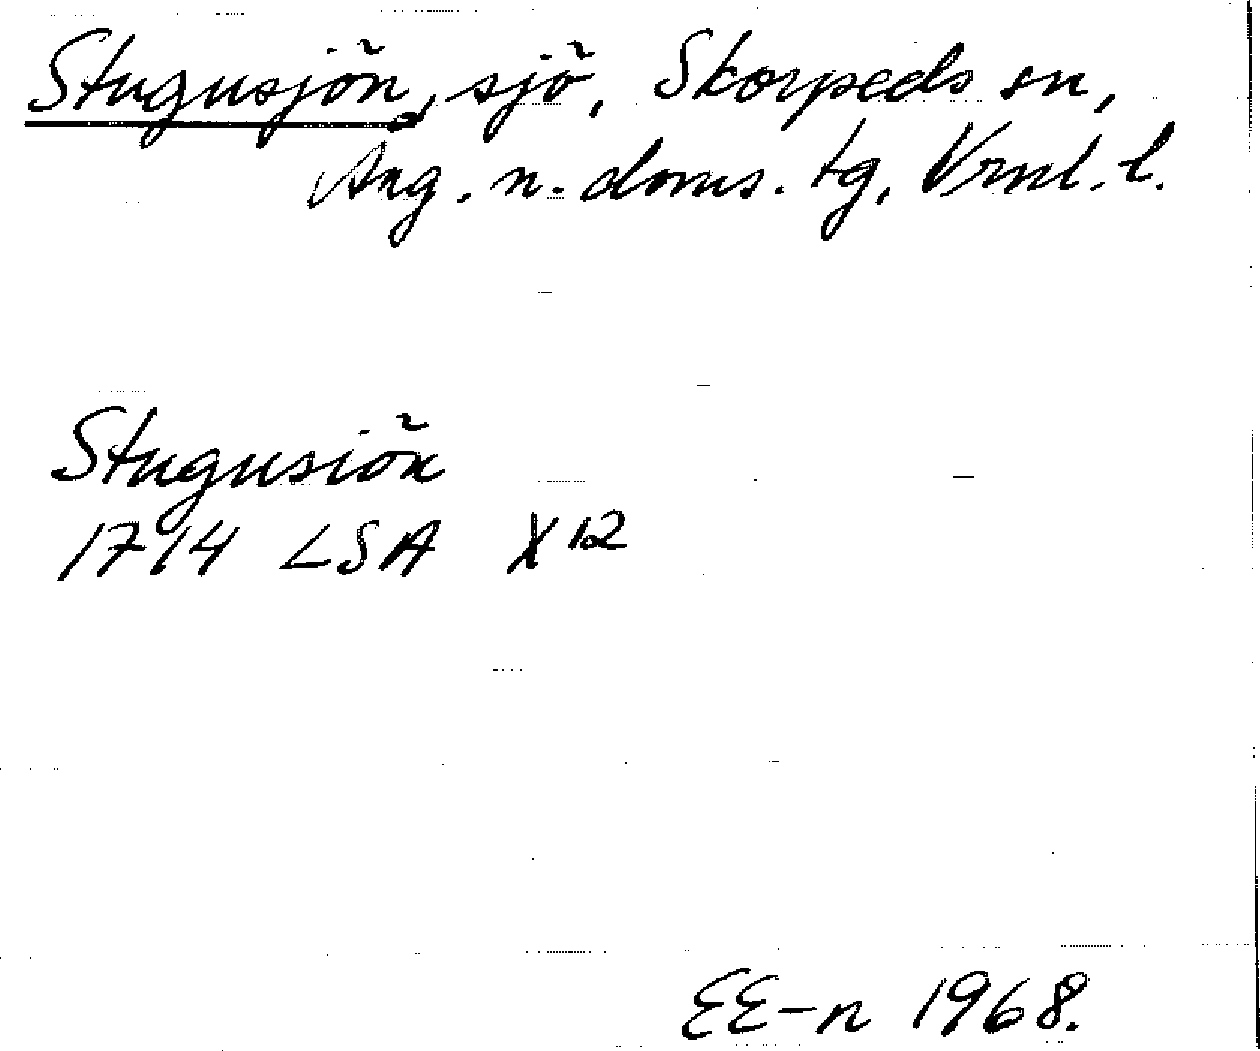 Stugusjön, sjö, Skorpeds sn,
Ång. n. doms. tg, Vrnl. l.
Stugusiön
1714 LSA X 12
EE-n 1968.